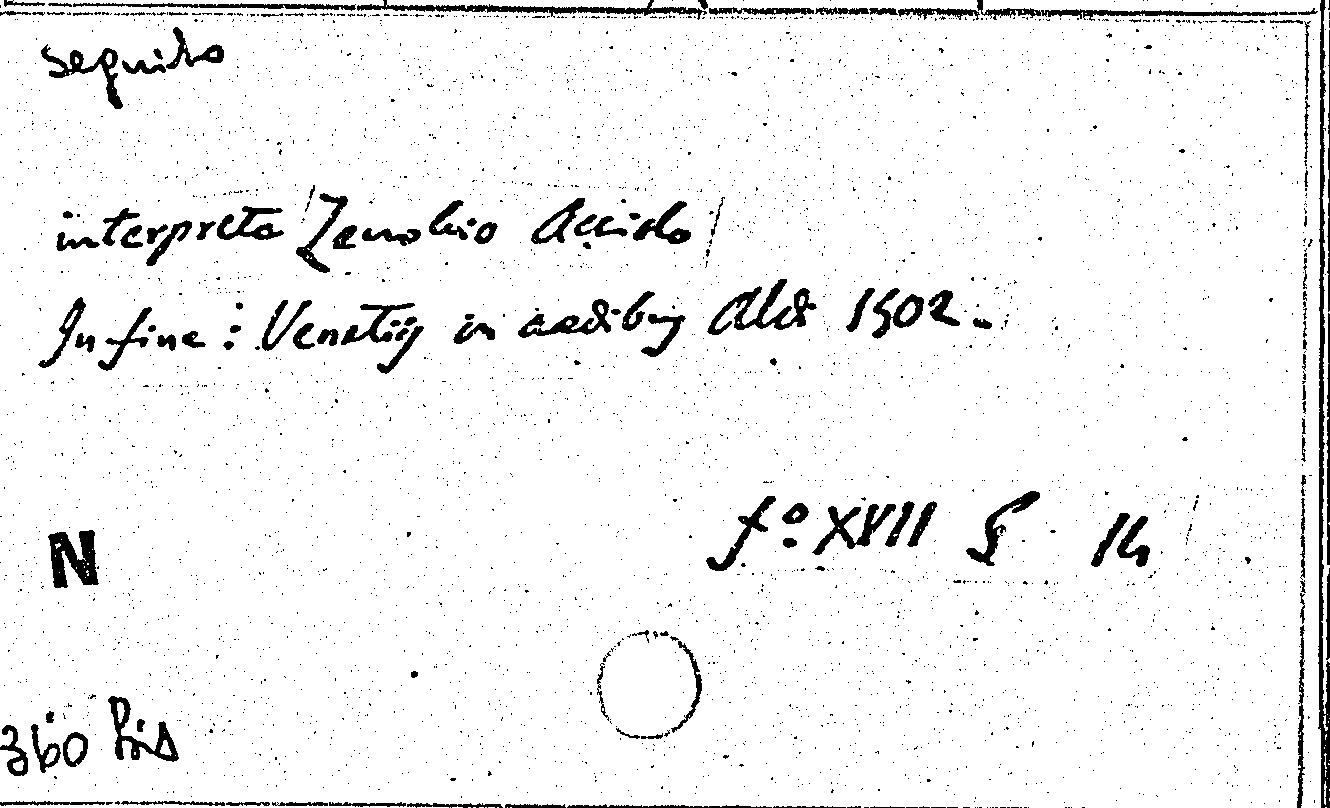 seguito
interprete Zenobio Acciolo
In fine: Venetijs in aedibus Aldi 1502.
fº XVII G 14
N
360 Bis